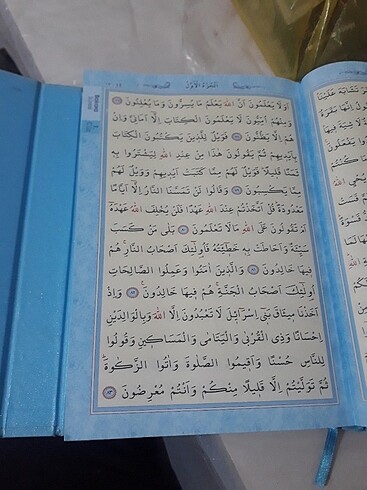 اَلْجُزْءُ الْاَوَّلُ
اَوَلَا يَعْلَمُونَ اَنَّ اللّٰهَ يَعْلَمُ مَا يُسِرُّونَ وَمَا يُعْلِنُونَ ﴿٧٧﴾
وَمِنْهُمْ اُمِّيُّونَ لَا يَعْلَمُونَ الْكِتَابَ اِلَّٓا اَمَانِيَّ وَاِنْ
هُمْ اِلَّا يَظُنُّونَ ﴿٧٨﴾ فَوَيْلٌ لِلَّذِينَ يَكْتُبُونَ الْكِتَابَ
بِاَيْدِيهِمْ ثُمَّ يَقُولُونَ هٰذَا مِنْ عِنْدِ اللّٰهِ لِيَشْتَرُوا بِهِ
ثَمَنًا قَلِيلًا فَوَيْلٌ لَهُمْ مِمَّا كَتَبَتْ اَيْدِيهِمْ وَوَيْلٌ لَهُمْ
مِمَّا يَكْسِبُونَ ﴿٧٩﴾ وَقَالُوا لَنْ تَمَسَّنَا النَّارُ اِلَّٓا اَيَّامًا
مَعْدُودَةً قُلْ اَتَّخَذْتُمْ عِنْدَ اللّٰهِ عَهْدًا فَلَنْ يُخْلِفَ اللّٰهُ عَهْدَهُ
اَمْ تَقُولُونَ عَلَى اللّٰهِ مَا لَا تَعْلَمُونَ ﴿٨٠﴾ بَلٰى مَنْ كَسَبَ
سَيِّئَةً وَاَحَاطَتْ بِهِ خَطِيئَتُهُ فَاُولٰٓئِكَ اَصْحَابُ النَّارِ هُمْ
فِيهَا خَالِدُونَ ﴿٨١﴾ وَالَّذِينَ اٰمَنُوا وَعَمِلُوا الصَّالِحَاتِ
اُولٰٓئِكَ اَصْحَابُ الْجَنَّةِ هُمْ فِيهَا خَالِدُونَ ﴿٨٢﴾ وَاِذْ
اَخَذْنَا مِيثَاقَ بَنِٓي اِسْرَٓائِلَ لَا تَعْبُدُونَ اِلَّا اللّٰهَ وَبِالْوَالِدَيْنِ
اِحْسَانًا وَذِي الْقُرْبٰى وَالْيَتَامٰى وَالْمَسَاكِينِ وَقُولُوا
لِلنَّاسِ حُسْنًا وَاَقِيمُوا الصَّلٰوةَ وَاٰتُوا الزَّكٰوةَ
ثُمَّ تَوَلَّيْتُمْ اِلَّا قَلِيلًا مِنْكُمْ وَاَنْتُمْ مُعْرِضُونَ ﴿٨٣﴾